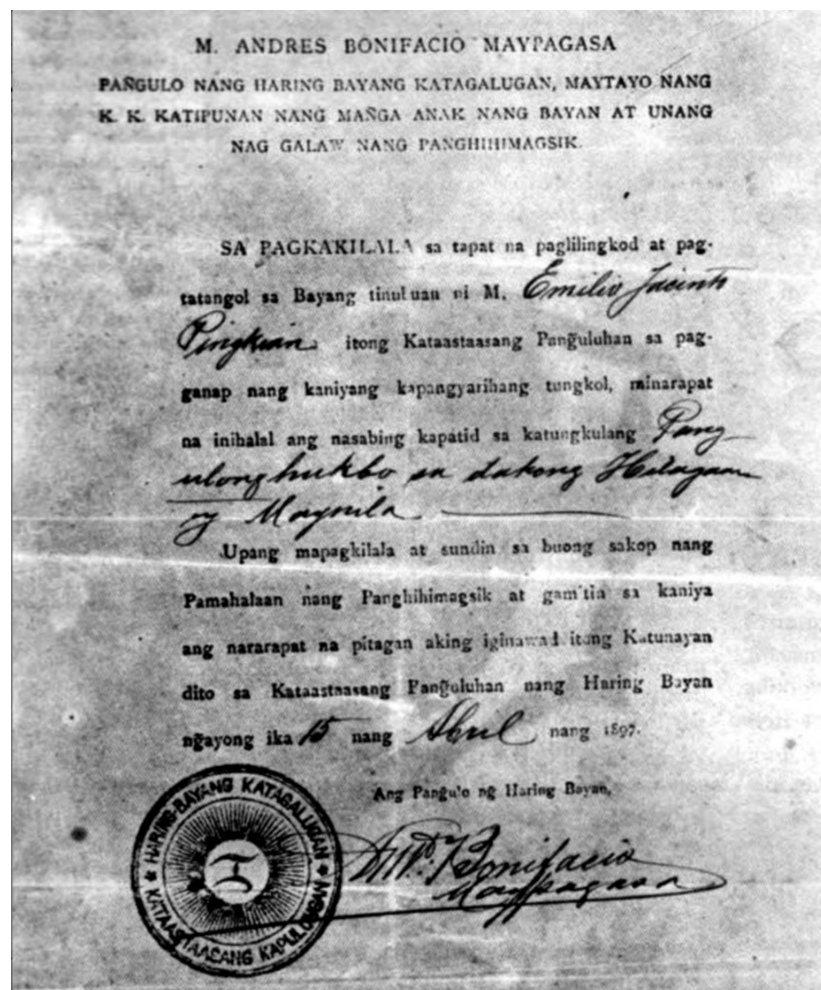 M. ANDRES BONIFACIO MAYPAGASA
PAÑGULO NANG HARING BAYANG KATAGALUGAN, MAYTAYO NANG
K. K. KATIPUNAN NANG MAÑGA ANAK NANG BAYAN AT UNANG
NAG GALAW NANG PANGHIHIMAGSIK.
SA PAGKAKILALA sa tapat na paglilingkod at pag-
tatangol sa Bayang tinubuan ni M. Emilio Jacinto
Pingkian. itong Kataastaasang Pang̃uluhan sa pag-
ganap nang kaniyang kapangyarihang tungkol, minarapat
na inihalal ang nasabing kapatid sa katungkulang Pang-
ulong hukbo sa dakong Hilagaan
ng Maynila
Upang mapagkilala at sundin sa buong sakop nang
Pamahalaan nang Panghihimagsik at gam'tin sa kaniya
ang nararapat na pitagan aking iginawad itong Katunayan
dito sa Kataastaasang Pang̃uluhan nang Haring Bayan
ng̃ayong ika 15 nang Abril nang 1897.
Ang Pang̃ulo ng Haring Bayan,
And. Bonifacio
Maypagasa
HARING-BAYANG KATAGALUGAN
KATAASTAASANG KAPULUNGAN